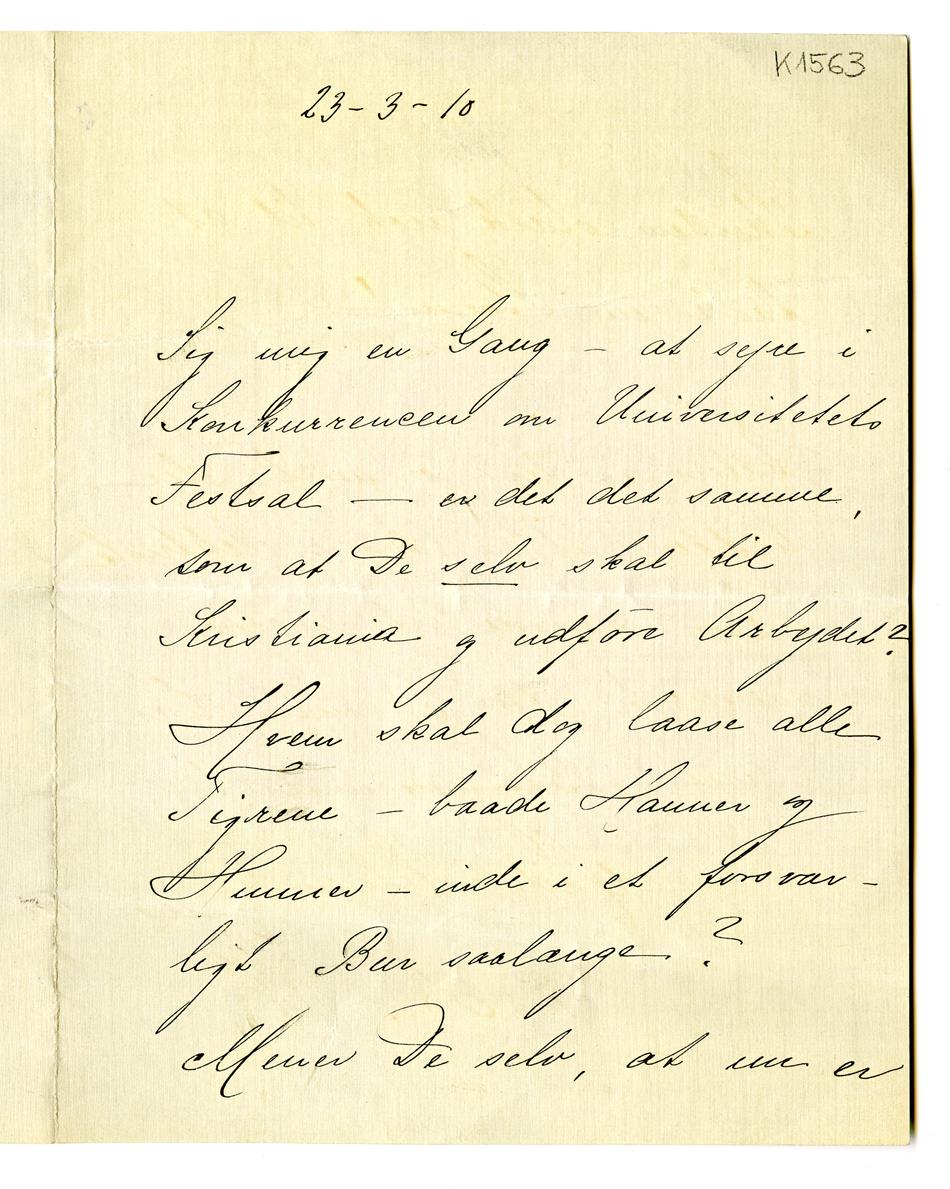 K1563
23-3-10
Sig mig en Gang – at sejre i
Konkurrencen om Universitetets
Festsal — er det det samme,
som at De selv skal til
Kristiania og udføre Arbejdet?
Hvem skal dog laase alle
Tigrene – baade Hanner og
Hunner – inde i et forsvar-
ligt Bur saalænge?
Mener De selv, at nu er